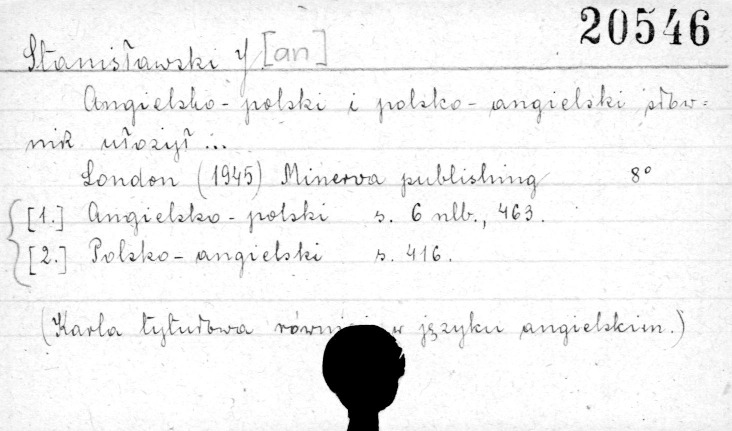 20546
Stanisławski J[an]
Angielsko-polski i polsko-angielski słow=
nik ułożył...
London (1945) Minerva publishing 8°
[1.] Angielsko-polski s. 6 nlb., 463.
[2.] Polsko-angielski s. 416.
(Karta tytułowa również w języku angielskim.)